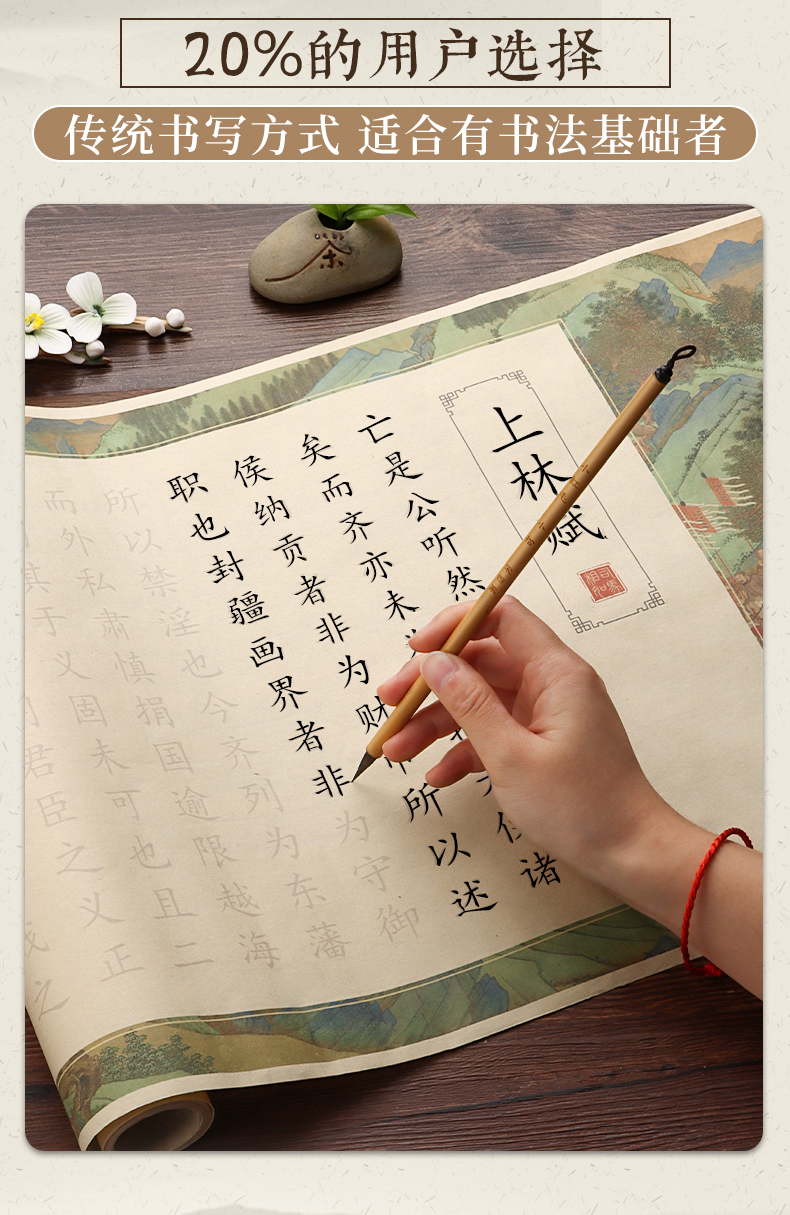 20%的用户选择
传统书写方式 适合有书法基础者
茶
上林赋
司马相如
亡是公听然
矣而齐亦未诸
侯纳贡者非为财所以述
职也封疆画界者非为守御
所以禁淫也今齐列为东藩
而外私肃慎捐国逾限越海
其于义固未可也且二
君臣之义正
之